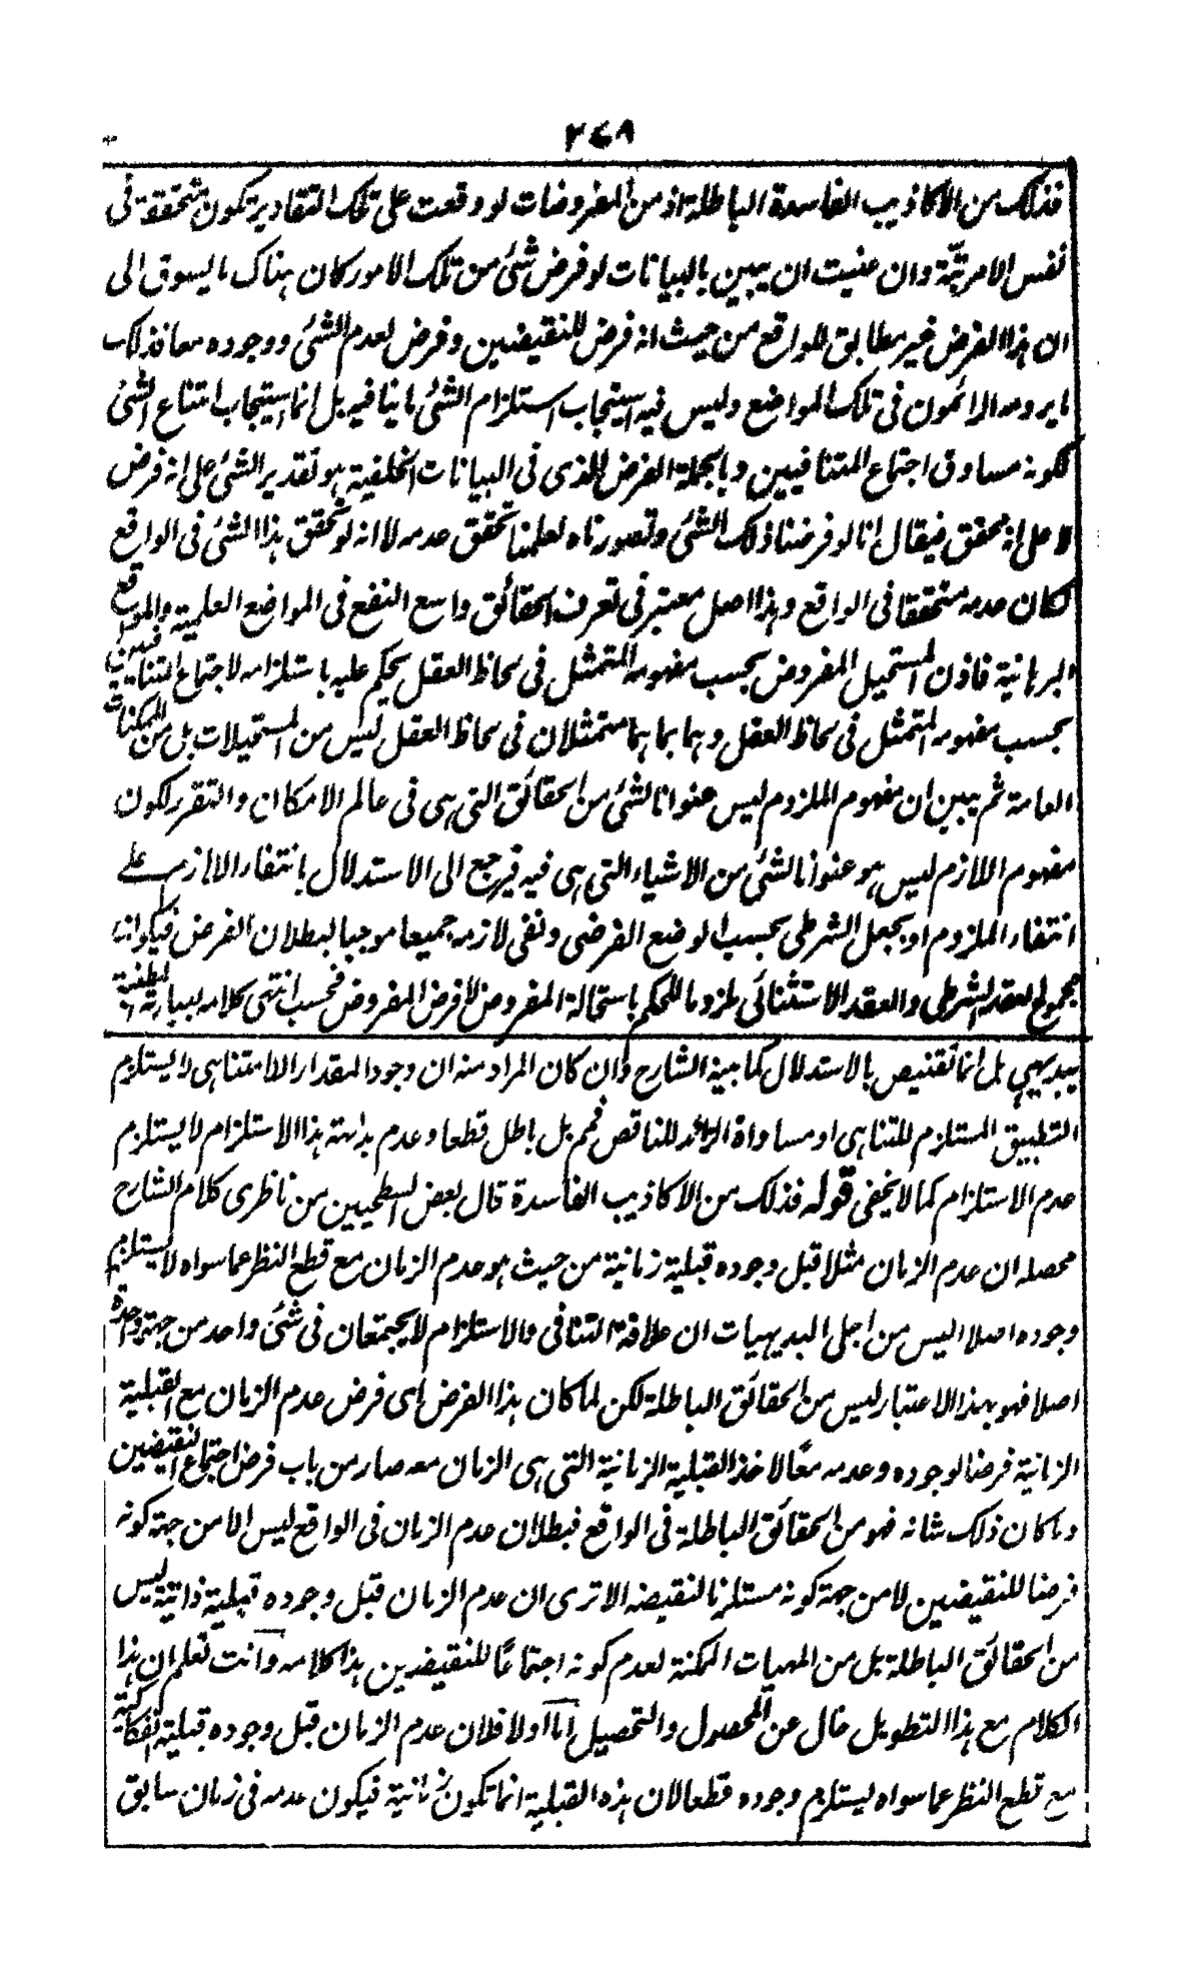 ٢٦٨
فذلك من الأكاذيب الفاسدة الباطلة اذ من المفروضات لو وقعت على تلك التقادير تكون متحققة فى
نفس الامر بتّة وان عنيت ان يبين بالبيانات لو فرض شئ من تلك الامور كان هناك ما يسوق الى
ان هذا الفرض غير مطابق للواقع من حيث انه فرض للنقيضين وفرض لعدم الشئ ووجوده معا فذلك
ما يرومه الرائمون فى تلك المواضع وليس فيه استيجاب استلزام الشئ ما ينافيه بل انما استيجاب امتناع الشئ
لكونه مساوق اجتماع المتنافيين وبالجملة الفرض للذى فى البيانات الخلفية هو تقدير الشئ على انه فرض
لا على انه محقق فيقال انا لو فرضنا ذلك الشئ وتصورناه لعلمنا تحقق عدمه لا انه لو تحقق هذا الشئ فى الواقع
لكان عدمه متحققا فى الواقع وهذا اصل معتبر فى تعرف الحقائق واسع النفع فى المواضع العلمية والمواقع
البرهانية فاذن المستحيل المفروض بحسب مفهومه المتمثل فى لحاظ العقل يحكم عليه باستلزامه لاجتماع المتنافيين
بحسب مفهومه المتمثل فى لحاظ العقل وهما بما هما متمثلان فى لحاظ العقل ليس من المستحيلات بل من الممكنات
العامة ثم يبين ان مفهوم الملزوم ليس عنوانا لشئ من الحقائق التى هى فى عالم الامكان والتقرر لكون
مفهوم اللازم ليس هو عنوانا لشئ من الاشياء التى هى فيه فيرجع الى الاستدلال بانتفاء اللازم على
انتفاء الملزوم او يجعل الشرطى بحسب الوضع الفرضى ونفى لازمه جميعا موجبا لبطلان الفرض فيكون
مجموع العقد الشرطى والعقد الاستثنائى ملزوما للحكم باستحالة المفروض لا فرض المفروض فحسب انتهى كلامه بعبارته
ببديهى بل انما تقتنص بالاستدلال كما بينه الشارح وان كان المراد منه ان وجود المقدار اللامتناهى لا يستلزم
التطبيق المستلزم للتناهى او مساواة الزائد للناقص فمم بل باطل قطعا وعدم بداهة هذا الاستلزام لا يستلزم
عدم الاستلزام كما لا يخفى قوله فذلك من الاكاذيب الفاسدة قال بعض السطحيين من ناظرى كلام الشارح
محصله ان عدم الزمان مثلا قبل وجوده قبلية زمانية من حيث هو عدم الزمان مع قطع النظر عما سواه لا يستلزم
وجوده اصلا اليس من اجلى البديهيات ان علاقة التنافى والاستلزام لا يجتمعان فى شئ واحد من جهة واحدة
اصلا فهو بهذا الاعتبار ليس من الحقائق الباطلة لكن لما كان هذا الفرض اى فرض عدم الزمان مع القبلية
الزمانية فرضا لوجوده وعدمه معًا لاخذ القبلية الزمانية التى هى الزمان معه صار من باب فرض اجتماع النقيضين
وما كان ذلك شانه فهو من الحقائق الباطلة فى الواقع فبطلان عدم الزمان فى الواقع ليس الا من جهة كونه
فرضا للنقيضين لا من جهة كونه مستلزما لنقيضه الا ترى ان عدم الزمان قبل وجوده قبلية ذاتية ليس
من الحقائق الباطلة بل من المهيات الممكنة لعدم كونه اجتماعًا للنقيضين هذا كلامه وانت تعلم ان هذا
الكلام مع هذا التطويل خال عن المحصول والتحصيل اما اولا فلان عدم الزمان قبل وجوده قبلية انفكاكية
مع قطع النظر عما سواه يستلزم وجوده قطعا لان هذه القبلية انما تكون زمانية فيكون عدمه فى زمان سابق